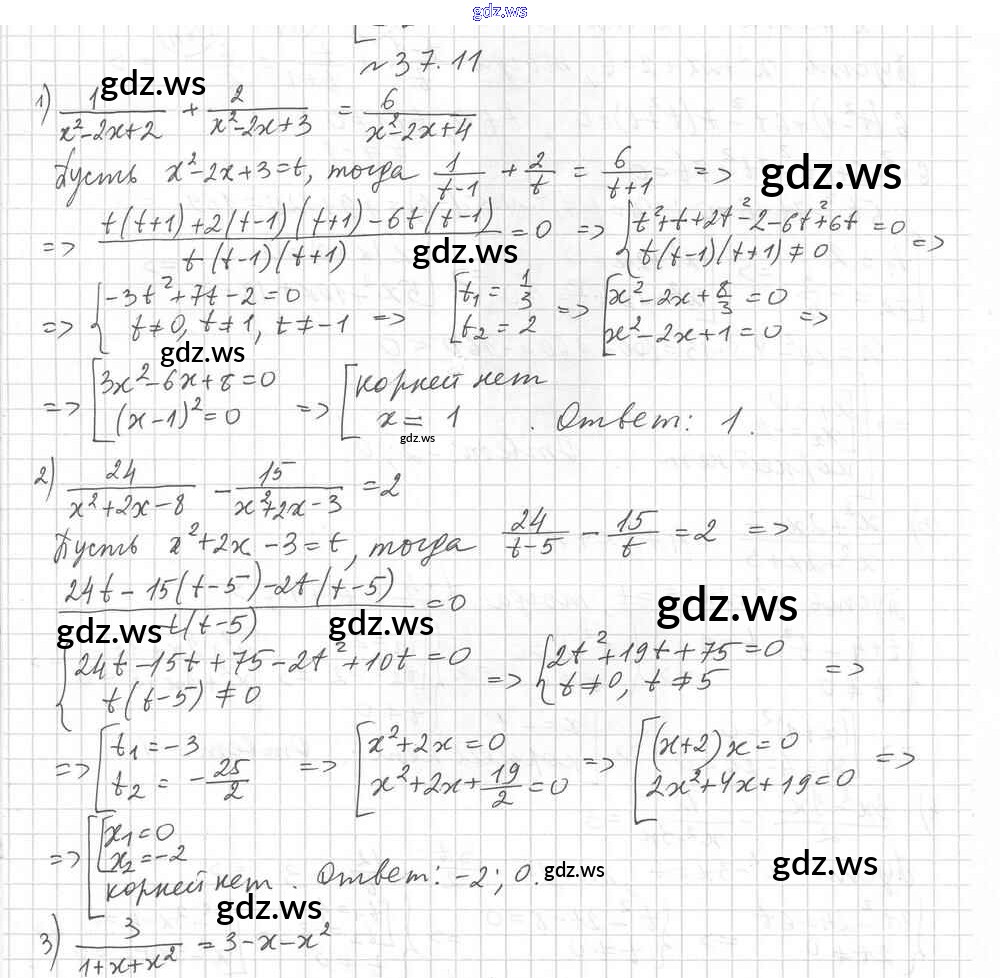 gdz.ws
№ 37.11
1) 1/(x²-2x+2) + 2/(x²-2x+3) = 6/(x²-2x+4)
gdz.ws
Пусть x²-2x+3=t, тогда 1/(t-1) + 2/t = 6/(t+1) =>
gdz.ws
=> (t(t+1)+2(t-1)(t+1)-6t(t-1))/(t(t-1)(t+1)) = 0 => { t²+t+2t²-2-6t²+6t = 0 ; t(t-1)(t+1) ≠ 0 =>
gdz.ws
=> { -3t²+7t-2=0 ; t≠0, t≠1, t≠-1 => [ t₁ = 1/3 ; t₂ = 2 => [ x²-2x+8/3 = 0 ; x²-2x+1=0 =>
gdz.ws
=> [ 3x²-6x+8=0 ; (x-1)²=0 => [ корней нет ; x = 1 . Ответ: 1.
gdz.ws
2) 24/(x²+2x-8) - 15/(x²+2x-3) = 2
Пусть x²+2x-3=t, тогда 24/(t-5) - 15/t = 2 =>
(24t-15(t-5)-2t(t-5))/(t(t-5)) = 0
gdz.ws
gdz.ws
gdz.ws
{ 24t-15t+75-2t²+10t=0 ; t(t-5)≠0 => { 2t²+19t+75=0 ; t≠0, t≠5 =>
=> [ t₁=-3 ; t₂ = -25/2 => [ x²+2x=0 ; x²+2x+19/2=0 => [ (x+2)x=0 ; 2x²+4x+19=0 =>
=> [ [ x₁=0 ; x₂=-2 ; корней нет . Ответ: -2; 0.
gdz.ws
gdz.ws
gdz.ws
3) 3/(1+x+x²) = 3-x-x²